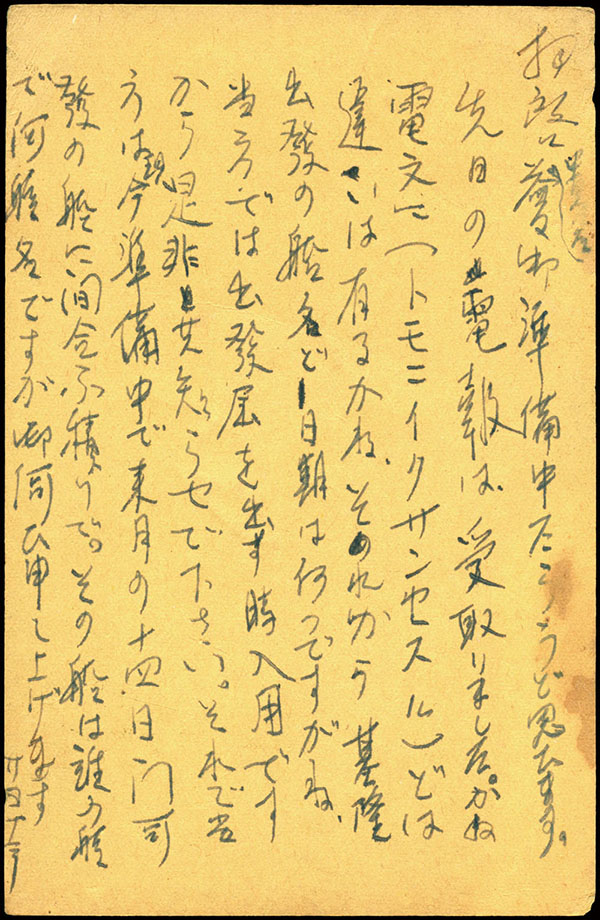 拝啓 蔓御準備中だろうど思ひます。
先日の電報は、受取りましたがね
電文に(トモニイクサンセスル)どは
違いは有るかね、そのれから基隆
出發の船名ど日期は何つですがね、
当方では出發届を出す時入用です
から是非共知らせで下さい。それで当
方は現今準備中で来月の十四日門司
發の船に間合ふ積りで。その船は誰の船
で何船名ですが御伺ひ申し上げます